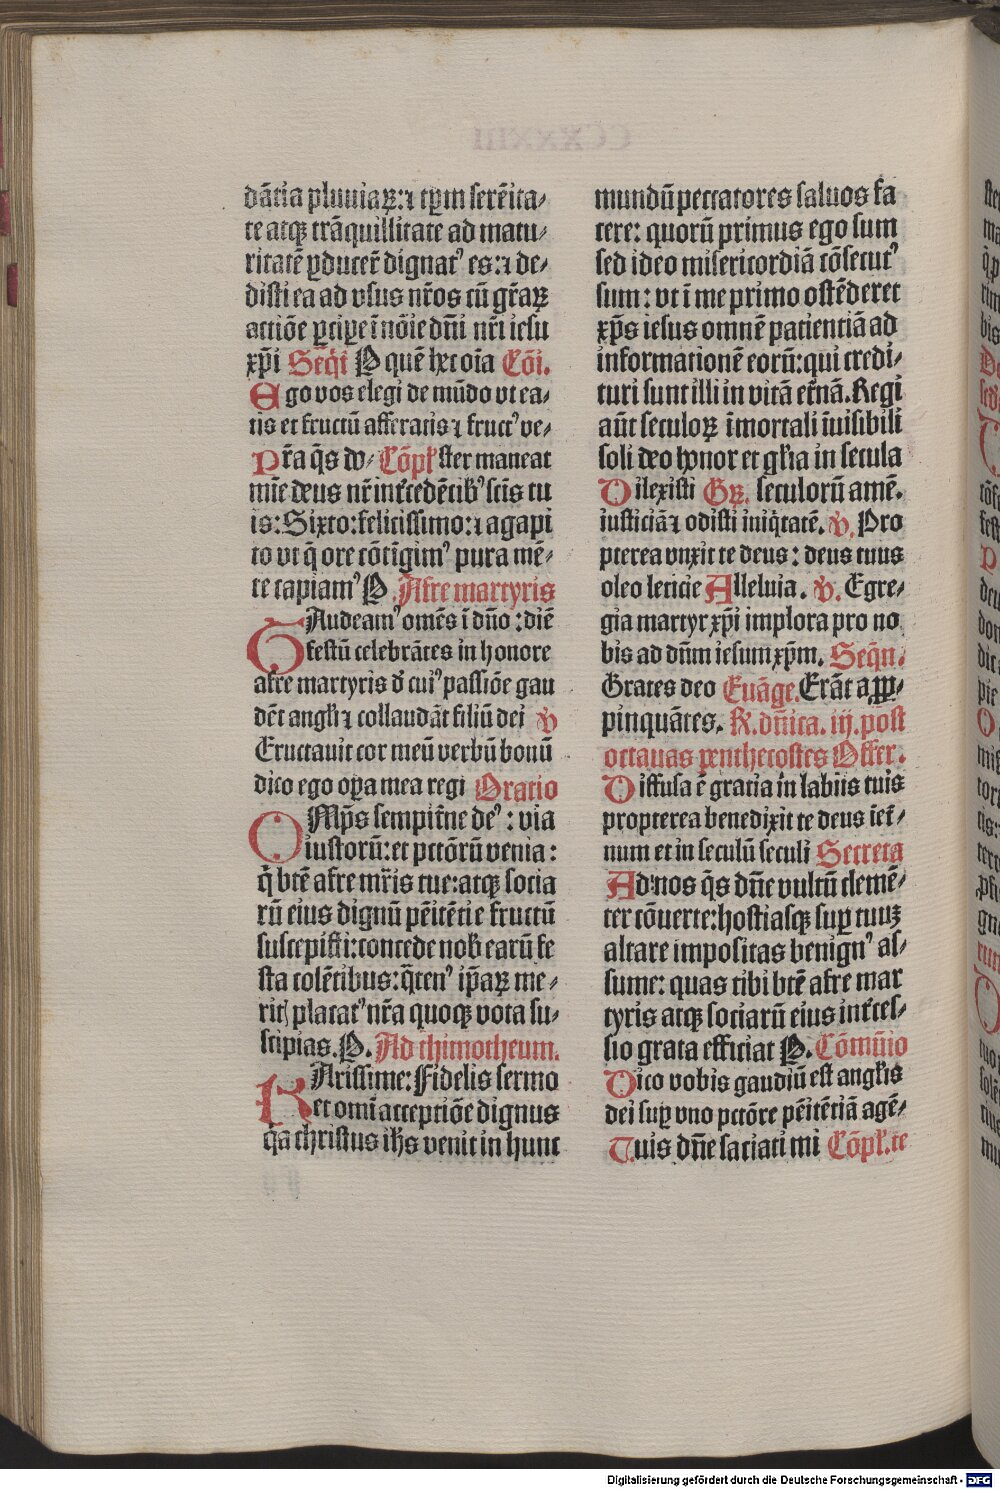 dãtia pluuiaꝝ:⁊ tꝑm serẽita⸗
te atqꝫ trãquillitate ad matu⸗
ritatẽ ꝓducer̃ dignatꝰ es:⁊ de⸗
disti ea ad vsus nr̃os cũ gr̃aꝝ
actiõe ꝑcipe ĩ nõie dñi nr̃i iesu
xp̃i Seq̃t P quẽ hec oĩa Cõi.
Ego vos elegi de mũdo vt ea⸗
tis et fructũ afferatis ⁊ fructꝰ ve⸗
Pr̃a q̃s do⸗ Cõpl̃ ster maneat
mĩe deus nr̃ int̃cedẽtibꝰ scĩs tu
is: Sixto: felicissimo: ⁊ agapi
to vt q̃ ore cõtĩgimꝰ pura mẽ⸗
te capiamꝰ P. Afre martyris
GAudeamꝰ omẽs ĩ dño: diẽ
festũ celebrãtes in honore
afre martyris ð cuiꝰ passiõe gau
dẽt angl̃i ⁊ collaudãt filiũ dei v
Eructauit cor meũ verbũ bonũ
dico ego oꝑa mea regi Oratio
OMp̃s sempit̃ne deꝰ: via
iustorũ: et pctõrũ venia:
q̃ btẽ afre mr̃is tue: atqꝫ socia
rũ eius dignũ pẽitẽtie fructũ
suscepisti: concede nob̃ earũ fe
sta colẽtibus: q̃tenꝰ ip̃aꝝ me⸗
rit̃ placatꝰ nr̃a quoqꝫ vota su⸗
scipias. P. Ad thimotheum.
KArissime: Fidelis sermo
et omĩ acceptiõe dignus
q̃a christus ih̃s venit in hunc
mundũ peccatores saluos fa
cere: quorũ primus ego sum
sed ideo misericordiã cõsecutꝰ
sum: vt ĩ me primo ostẽderet
xp̃s iesus omnẽ patientiã ad
informationẽ eorũ: qui credi⸗
turi sunt illi in vitã et̃nã. Regi
aũt seculoꝝ ĩmortali ĩuisibili
soli deo honor et gl̃ia in secula
Dilexisti Gꝝ. seculorũ amẽ.
iusticiã ⁊ odisti iniq̃tatẽ. v. Pro
pterea vnxit te deus: deus tuus
oleo leticie Alleluia. v. Egre⸗
gia martyr xp̃i implora pro no
bis ad dñm iesum xp̃m. Seq̃n.
Grates deo Euãge. Erãt aꝓp⸗
pinquãtes. R. dñica. iij. post
octauas penthecostes Offer.
Diffusa ẽ gracia in labijs tuis
propterea benedixit te deus iet̃⸗
num et in seculũ seculi Secreta
Ad nos q̃s dñe vultũ clemẽ⸗
ter cõuerte: hostiasqꝫ suꝑ tuuꝫ
altare impositas benignꝰ as⸗
sume: quas tibi btẽ afre mar
tyris atqꝫ sociarũ eius int̃ces⸗
sio grata efficiat P. Cõmũio
Dico vobis gaudiũ est angl̃is
dei suꝑ vno pctõre pẽitẽtiã agẽ⸗
Tuis dñe saciati mi Cõpl̃. te
Digitalisierung gefördert durch die Deutsche Forschungsgemeinschaft - DFG